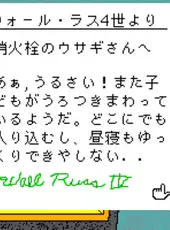 ウォール・ラス4世より
消火栓のウサギさんへ
あぁ,うるさい！また子
どもがうろつきまわって
いるようだ。どこにでも
入り込むし、昼寝もゆっ
くりできやしない..
Russ IV